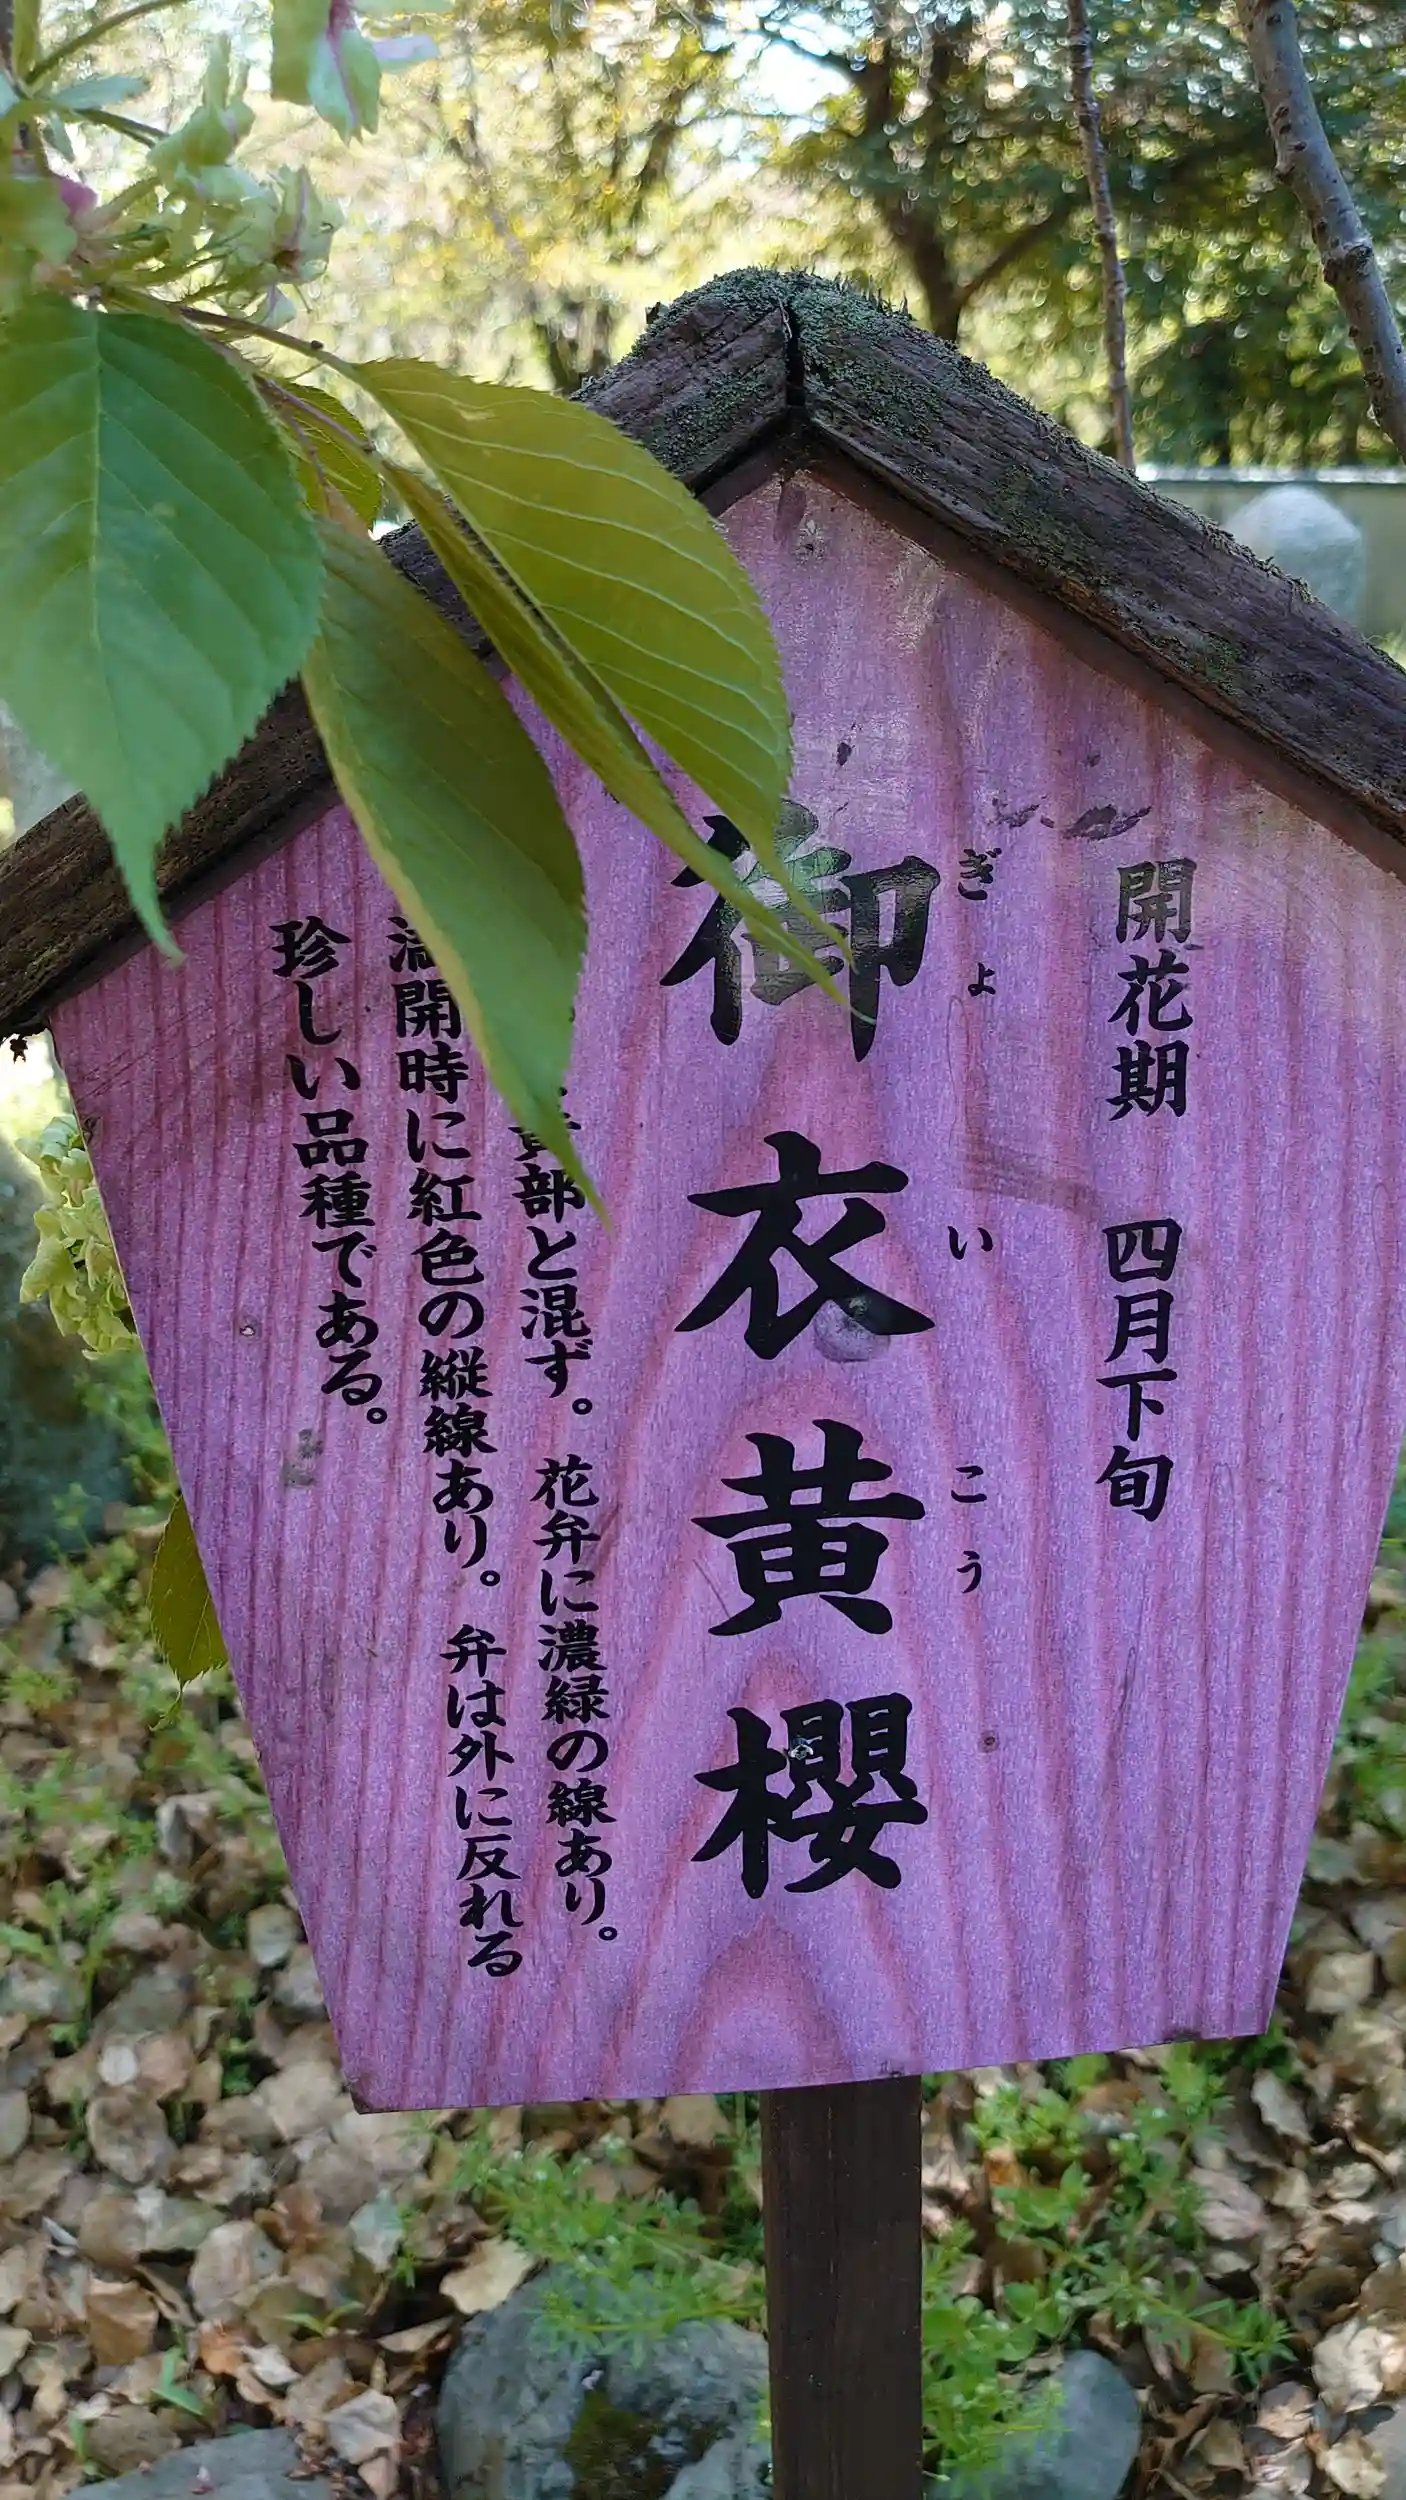 開花期 四月下旬
ぎょ い こう
御衣黄櫻
部と混ず。花弁に濃緑の線あり。
満開時に紅色の縦線あり。弁は外に反れる
珍しい品種である。